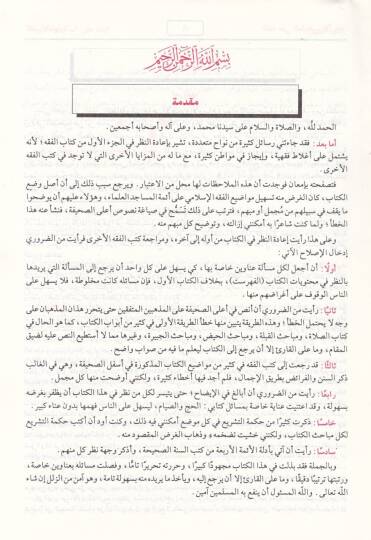 بسم الله الرحمن الرحيم
مقدمة
الحمد لله، والصلاة والسلام على سيدنا محمد، وعلى آله وأصحابه أجمعين.
أما بعد: فقد جاءتني رسائل كثيرة من نواح متعددة، تشير بإعادة النظر في الجزء الأول من كتاب الفقه؛ لأنه
يشتمل على أغلاط فقهية، وإيجاز في مواطن كثيرة، مع ما له من المزايا الأخرى التي لا توجد في كتب الفقه
الأخرى.
فتصفحته بإمعان فوجدت أن هذه الملاحظات لها محل من الاعتبار. ويرجع سبب ذلك إلى أن أصل وضع
الكتاب، كان الغرض منه تسهيل مواضيع الفقه الإسلامي على أئمة المساجد العلماء، وهؤلاء عليهم أن يوضحوا
ما يقف في سبيلهم من مجمل أو مبهم، فترتب على ذلك تسمح في صياغة نصوص أعلى الصحيفة، فنشأ عنه هذا
الخطأ؛ ولما كنت شاعرًا به أمكنني إزالته، وتوضيح كل مبهم منه.
وعلى هذا رأيت إعادة النظر في الكتاب من أوله إلى آخره، ومراجعة كتب الفقه الأخرى فرأيت من الضروري
إدخال الإصلاح الآتي:
أولًا: أن أجعل لكل مسألة عناوين خاصة بها، كي يسهل على كل واحد أن يرجع إلى المسألة التي يريدها
بالنظر في محتويات الكتاب (الفهرست)، بخلاف الكتاب الأول، فإن مسائله كانت مخلوطة، فلا يسهل على
الناس الوقوف على أغراضهم منها.
ثانيًا: رأيت من الضروري أن أنص في أعلى الصحيفة على المذهبين المتفقين حتى يتحرر هذان المذهبان على
وجه لا يحتمل الخطأ؛ وهذه الطريقة يتبين منها خطأ الطريقة الأولى في كثير من أبواب الكتاب، كما هو الحال في
كتاب الصلاة، ومباحث القبلة، ومباحث الحيض، ومباحث الجبيرة، وغيرها مما لا أستطيع النص عليه لضيق
المقام، وما على القارئ إلا أن يرجع إلى الكتاب ليعلم ما فيه من صواب واضح.
ثالثًا: قد رجعت إلى كتب الفقه في كثير من مواضيع الكتاب المذكورة في أسفل الصحيفة، وهي في الغالب
ذكر السنن والفرائض بطريق الإجمال، فلم أجد فيها أخطاء كثيرة، ولكنني أوضحت منها كل مجمل.
رابعًا: رأيت من الضروري أن أبالغ في الإيضاح؛ حتى يتيسر لكل من نظر في هذا الكتاب أن يظفر بغرضه
بسهولة، وقد اعتنيت عناية خاصة بمسائل كتابي: الحج والصيام، ليسهل على الناس فهمها بدون عناء كبير.
خامسًا: ذكرت كثيرًا من حكمة التشريع في كل موضع أمكنني فيه ذلك، وكنت أود أن أكتب حكمة التشريع
لكل مباحث الكتاب، ولكنني خشيت تضخمه وذهاب الغرض المقصود منه.
سادسًا: رأيت أن آتي بأدلة الأئمة الأربعة من كتب السنة الصحيحة، وأذكر وجهة نظر كل منهم.
وبالجملة فقد بذلت في هذا الكتاب مجهودًا كبيرًا، وحررته تحريرًا تامًا، وفصلت مسائله بعناوين خاصة،
ورتبتها ترتيبًا دقيقًا، وما على القارئ إلا أن يرجع إليه، ويأخذ ما يريده منه بسهولة تامة، وهو آمن من الزلل إن شاء
الله تعالى. والله المسئول أن ينفع به المسلمين آمين.